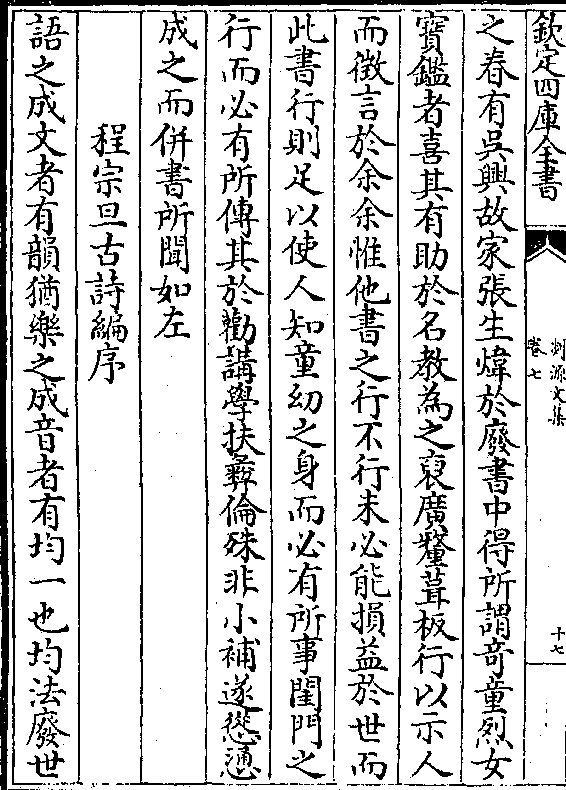 欽定四庫全書
剡源文集
卷七
十七
之眷有吳興故家張生煒於廢書中得所謂奇童烈女
寳鑑者喜其有助於名教為之裒廣釐葺板行以示人
而徴言於余余惟他書之行不行未必能損益於世而
此書行則足以使人知童幼之身而必有所事閨門之
行而必有所傳其於勸講學扶彞倫殊非小補遂慫慂
成之而併書所聞如左
程宗旦古詩編序
語之成文者有韻猶樂之成音者有均一也均法廢世